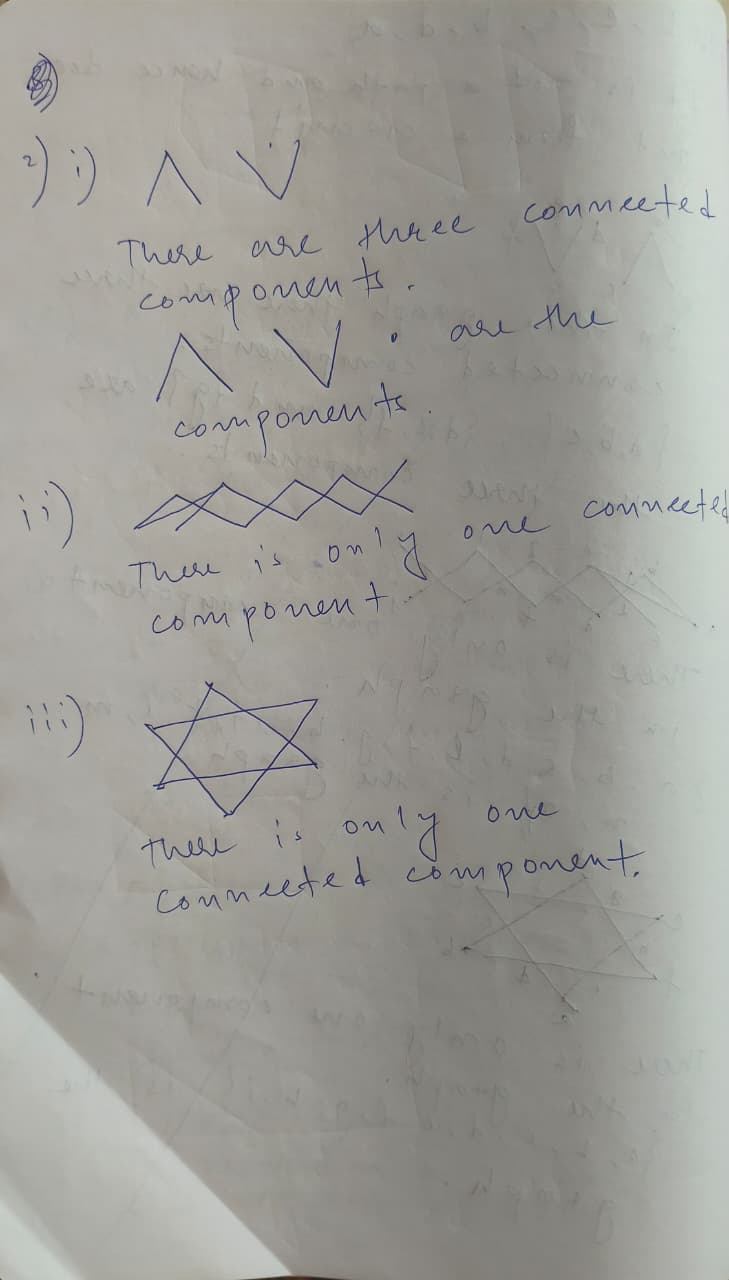 2) i)
There are three connected
components.
are the
components.
ii)
There is only one connected
component.
iii)
there is only one
connected component.